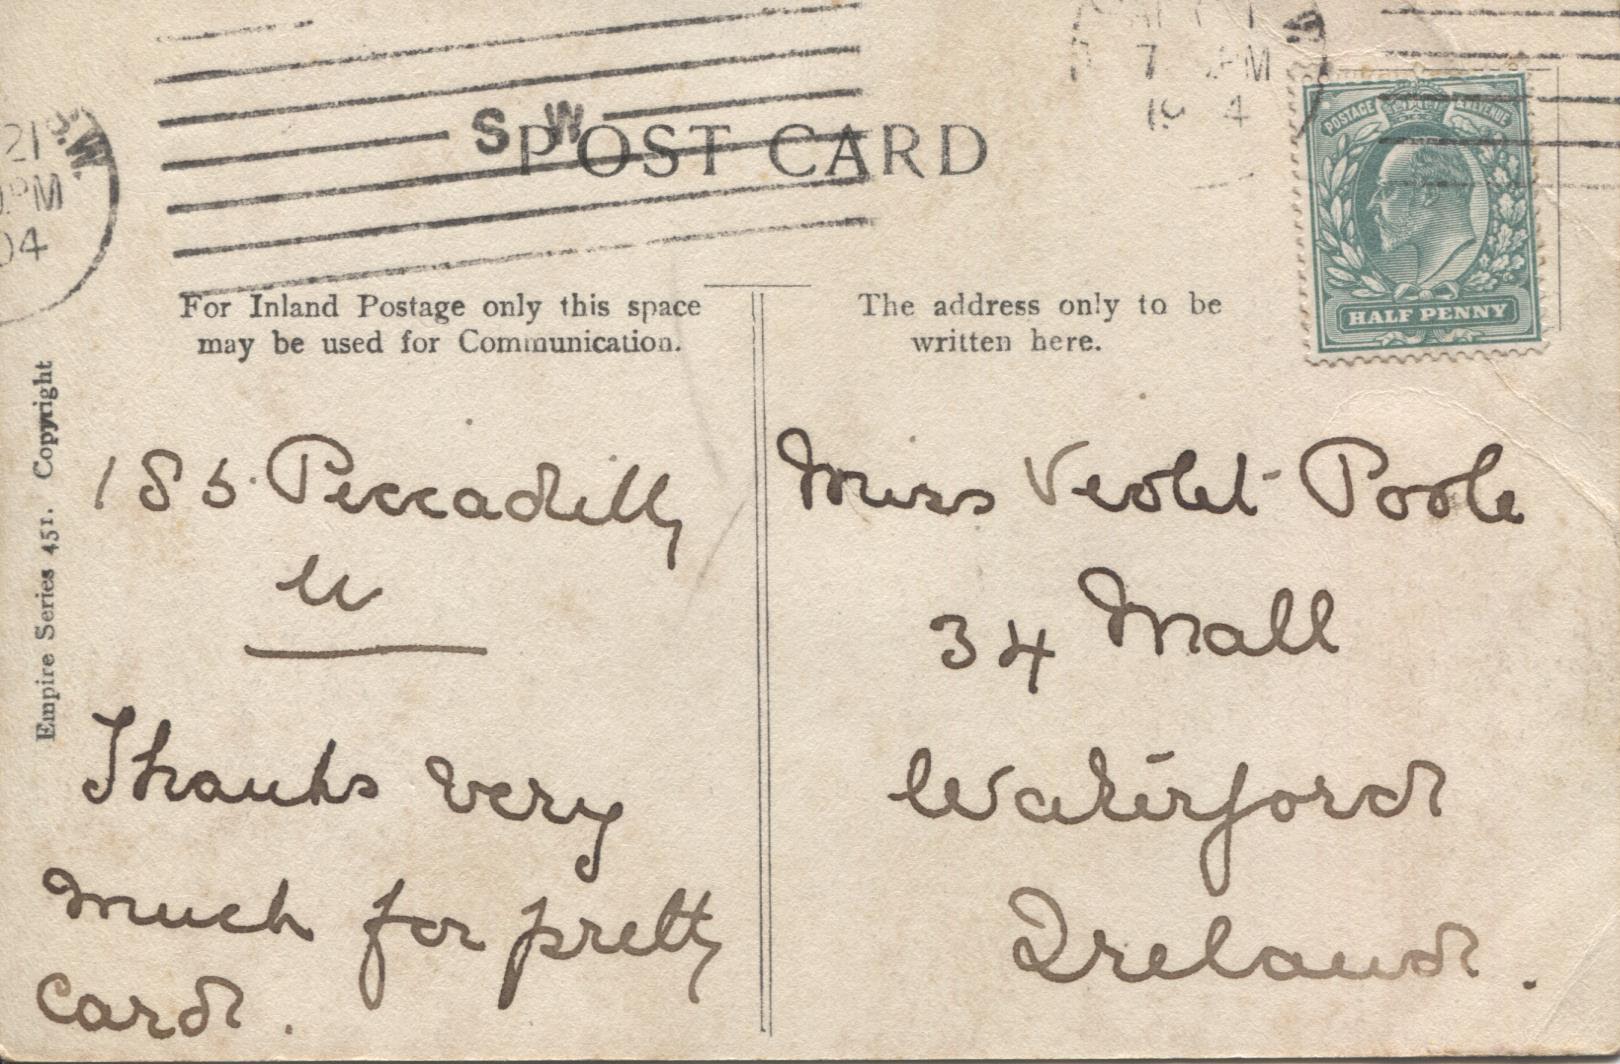 S.W.
21
PM
04
S W
POST CARD
7 PM
POSTAGE & REVENUE
HALF PENNY
For Inland Postage only this space
may be used for Communication.
The address only to be
written here.
Empire Series 451. Copyright
185 Piccadilly
W
Thanks very
much for pretty
card.
Miss Violet Poole
34 Mall
Waterford
Ireland.